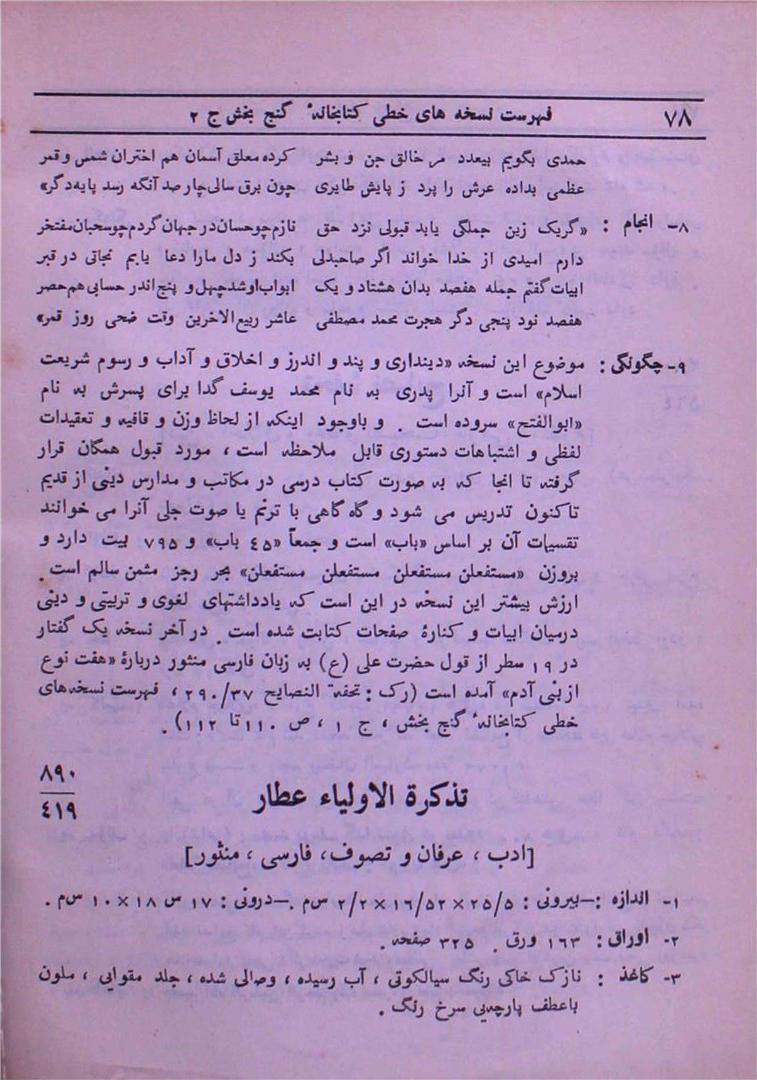 ۷۸ فهرست نسخه های خطی کتابخانهٔ گنج بخش ج ۲
حمدی بگویم بیعدد مر خالق جن و بشر کرده معلق آسمان هم اختران شمس و قمر
عظمی بداده عرش را پرد ز پایش طایری چون برق سالی چار صد آنکه رسد پایه دگر»
۸- انجام : «گریک زین جملگی یابد قبولی نزد حق نازم چو حسان در جهان گردم چو سحبان مفتخر
دارم امیدی از خدا خواند اگر صاحبدلی بکند ز دل مارا دعا یابم نجاتی در قبر
ابیات گفتم جمله هفصد بدان هشتاد و یک ابواب او شد چهل و پنج اندر حسابی هم حصر
هفصد نود پنجی دگر هجرت محمد مصطفی عاشر ربیع الاخرین وقت ضحی روز قمر»
۹- چگونگی : موضوع این نسخه «دینداری و پند و اندرز و اخلاق و آداب و رسوم شریعت
اسلام» است و آنرا پدری به نام محمد یوسف گدا برای پسرش به نام
«ابوالفتح» سروده است . و باوجود اینکه از لحاظ وزن و قافیه و تعقیدات
لفظی و اشتباهات دستوری قابل ملاحظه است ، مورد قبول همگان قرار
گرفته تا انجا که به صورت کتاب درسی در مکاتب و مدارس دینی از قدیم
تاکنون تدریس می شود و گاه گاهی با ترنم یا صوت جلی آنرا می خوانند
تقسیمات آن بر اساس «باب» است و جمعاً «٤٥ باب» و ۷۹۵ بیت دارد و
بروزن «مستفعلن مستفعلن مستفعلن مستفعلن» بحر رجز مثمن سالم است .
ارزش بیشتر این نسخه در این است که یادداشتهای لغوی و تربیتی و دینی
درمیان ابیات و کنارهٔ صفحات کتابت شده است . در آخر نسخه یک گفتار
در ۱۹ سطر از قول حضرت علی (ع) به زبان فارسی منثور دربارهٔ «هفت نوع
از بنی آدم» آمده است (رک : تحفة النصایح ۲۹۰/۳۷ ، فهرست نسخه های
خطی کتابخانهٔ گنج بخش ، ج ۱ ، ص ۱۱۰ تا ۱۱۲) .
۸۹۰
٤١٩
تذکرة الاولیاء عطار
[ادب ، عرفان و تصوف ، فارسی ، منثور]
۱- اندازه :—بیرونی : ۲۵/۵ × ۱۶/۵۲ × ۲/۲ س م .—درونی : ۱۷ س ۱۸ × ۱۰ س م .
۲- اوراق : ۱۶۳ ورق . ۳۲۵ صفحه .
۳- کاغذ : نازک خاکی رنگ سیالکوتی ، آب رسیده ، وصالی شده ، جلد مقوایی ، ملون
باعطف پارچه‌یی سرخ رنگ .